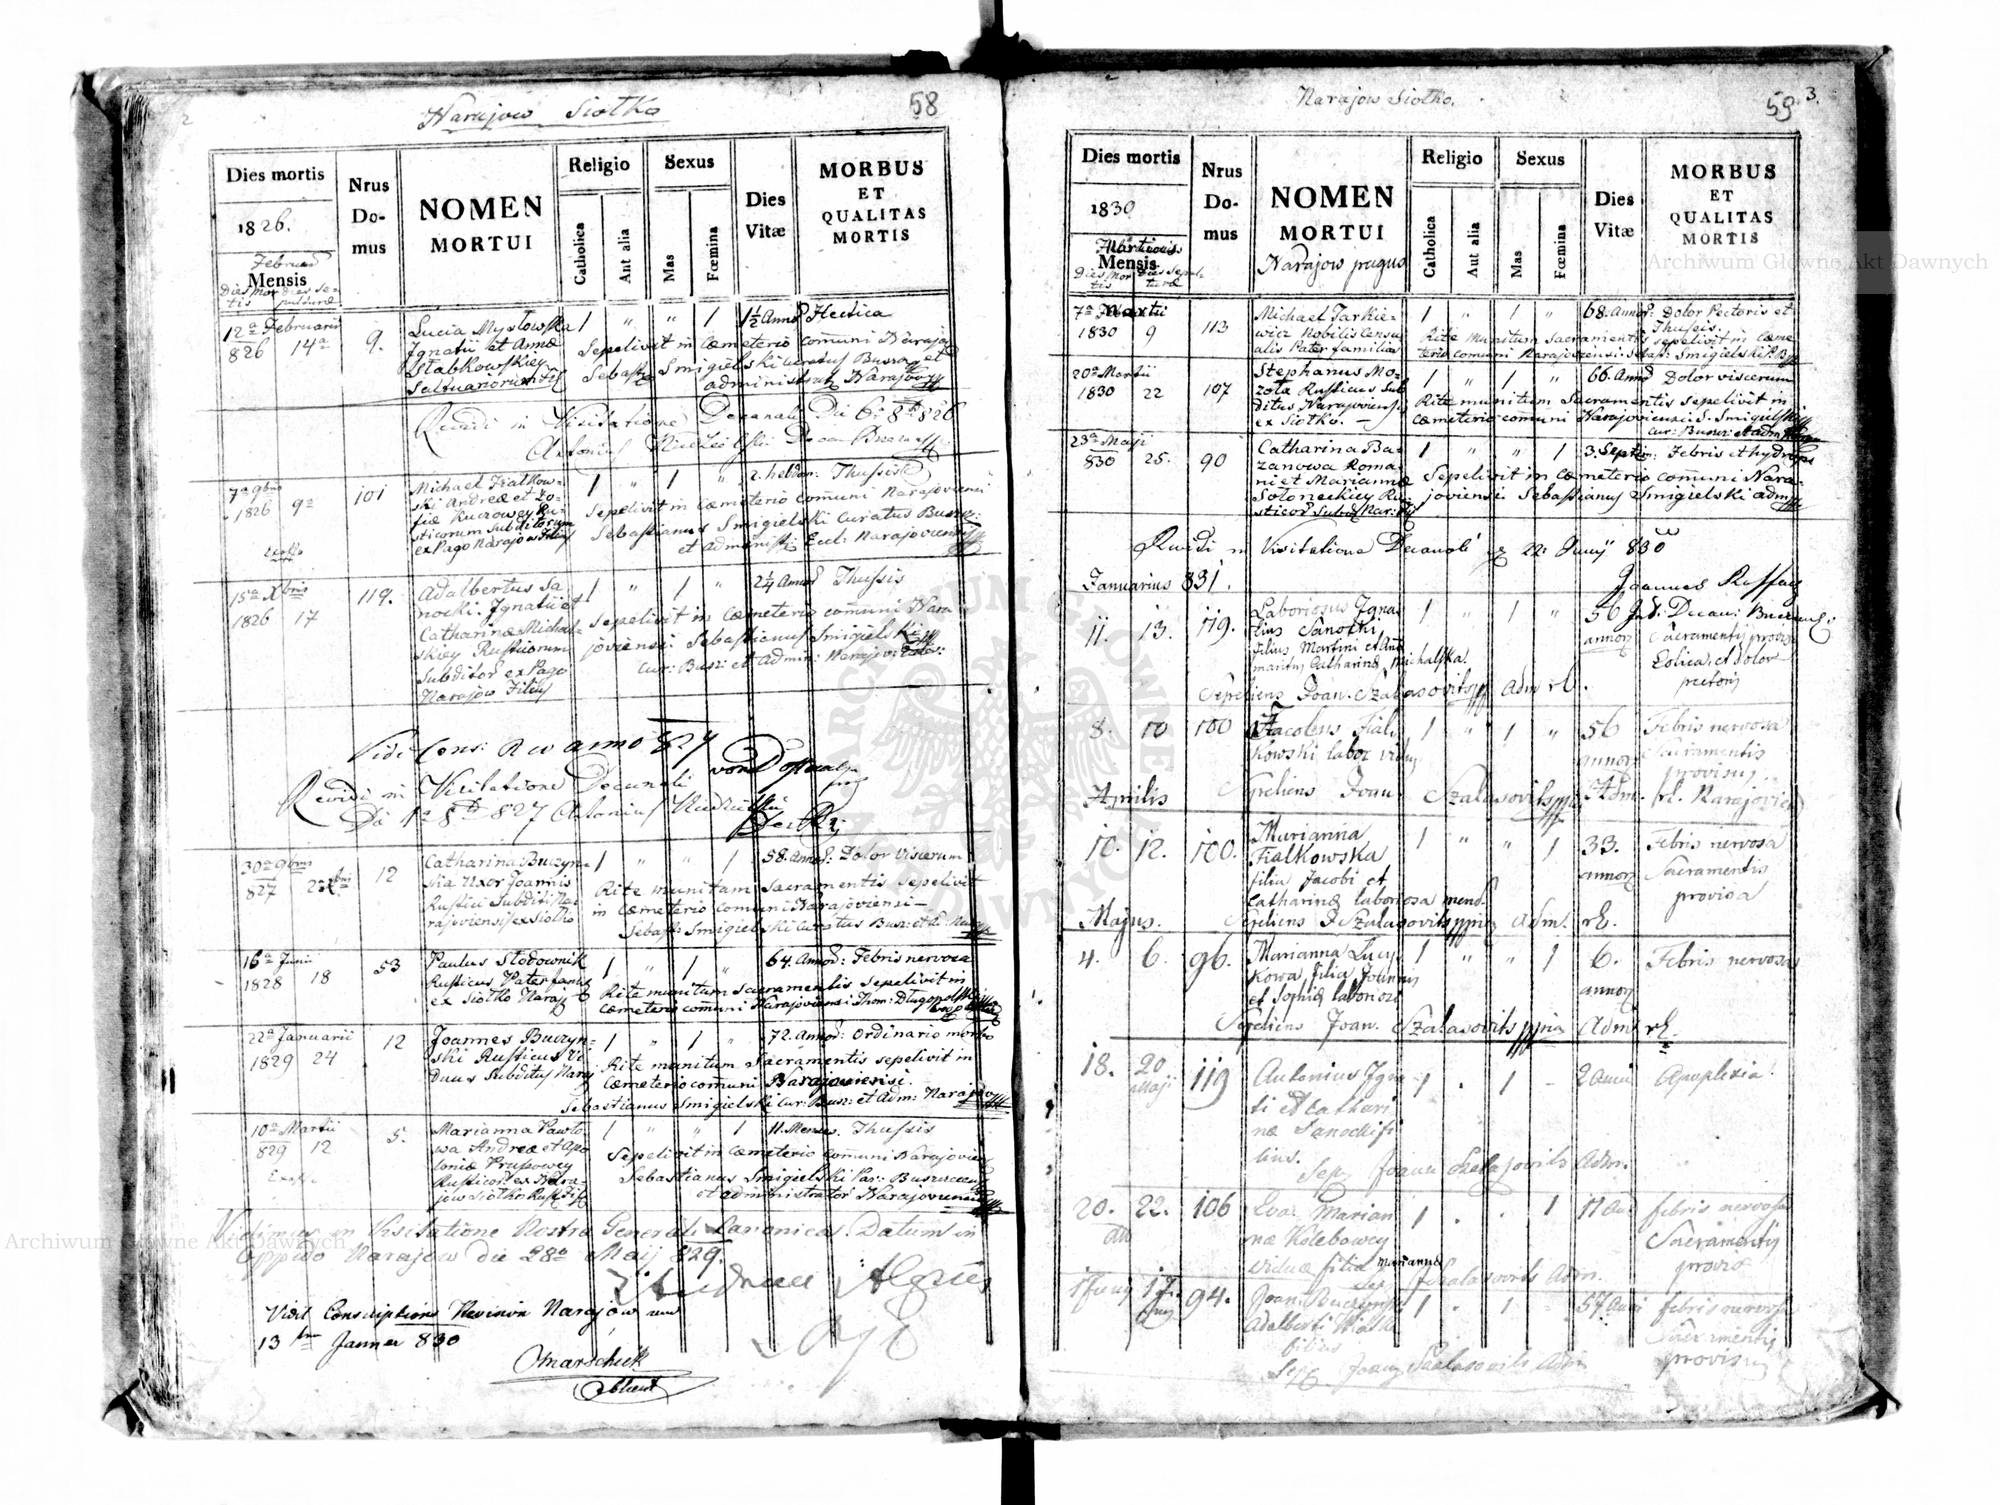 Narajow Siołko
58
Dies mortis
1826.
Februarii
Mensis
Nrus Do-mus
NOMEN MORTUI
Religio
Catholica
Aut alia
Sexus
Mas
Fœmina
Dies Vitæ
MORBUS ET QUALITAS MORTIS
12a Februarii
826 14a
9.
Lucia Mysłowska
Ignatii et Annæ
Słabkowskiey
1 " " 1
1½ Annor Hectica
Sepelivit in Cæmeterio communi Narajo
Sebast: Smigielski Curatus Busz: et
administrator Narajow
Revidi in Visitatione Decanali Die 6a 8bris 826
Antonius
7a 9bris
1826 9a
101
Michael Fiałkow-
ski Andreæ et Zo-
fiæ Kuczowey Ru-
sticorum Subditorum
ex Pago Narajow Filius
1 " 1 "
2. hebdom: Thussis
Sepelivit in Cæmeterio communi Narajoviensi
Sebastianus Smigielski Curatus Busz:
et Administr: Eccl: Narajoviensis
15a Xbris
1826 17
119.
Adalbertus Sa-
nocki. Ignatii et
Catharinæ Michal-
skiey Rusticorum
Subditor ex Pago
Narajow Filius
1 " 1 "
2¼ Annor Thussis
Sepelivit in Cæmeterio communi Nara-
joviensi Sebastianus Smigielski
Cur: Busz: et Admin: Narajov:
Vidi Cons: Rev anno 827
Revidi in Visitatione Decanali
Die 12 8bris 827 Antonius
30a 9bris
827 2a Xbris
12
Catharina Buczyn-
ska Uxor Joannis
Rustici Subditi Na-
rajoviensis ex Siołko
1 " " 1
58. Annor: Dolor Viscerum
Rite munitam Sacramentis sepelivit
in Cæmeterio comuni Narajoviensi —
Sebast: Smigielski Curatus Busz: et Ad: Naraj
16a Junii
1828 18
53
Paulus Stodownik
Rusticus Pater familias
ex Siołko Naraj
1 " 1 "
64. Annor: Febris nervosa
Rite munitum sacramentis sepelivit in
Cæmeterio comuni Narajoviensi Thom: Długopolski
22a Januarii
1829 24
12
Joannes Buczyn-
ski Rusticus Vi-
duus Subditus Naraj
1 " 1 "
72. Annor: Ordinario morbo
Rite munitum Sacramentis sepelivit in
Cæmeterio comuni Narajoviensi.
Sebastianus Smigielski Cur: Busz: et Adm: Narajow
10a Martii
829 12
5.
Marianna Pawło-
wa Andreæ et Apo-
loniæ Prusowey
Rusticor ex Nara-
jow Siołko
1 " " 1
11. Menses. Thussis
Sepelivit in Cæmeterio comuni Narajoviens
Sebastianus Smigielski Par: Buszczens
et administrator Narajoviensis
Vidimus in Visitatione Nostra Generali Canonica. Datum in
Oppido Narajow die 28a Maij 829.
Vidit Conscriptions Revision Narajow
13ten Janner 830
Marschick
Narajow Siołko.
59
3.
Dies mortis
1830
Mensis
Nrus Do-mus
NOMEN MORTUI
Narajow pagus
Religio
Catholica
Aut alia
Sexus
Mas
Fœmina
Dies Vitæ
MORBUS ET QUALITAS MORTIS
7a Martii
1830 9
113
Michael Tarkie-
wicz Nobilis Censu-
alis Pater familias
1 " 1 "
68. Annor: Dolor Pectoris et
Thussis.
Rite munitum Sacramentis sepelivit in Cæme-
terio comuni Narajoviensi: Sebast: Smigielski
20a Martii
1830 22
107
Stephanus Mo-
zola Rusticus Sub-
ditus Narajoviensis
ex Siołko. —
1 " 1 "
66. Annor Dolor viscerum
Rite munitum Sacramentis sepelivit in
Cæmeterio comuni Narajoviensi S. Smigielski
Cur: Busz: et adm
23a Maji
830 25.
90
Catharina Ba-
zanowa Roma-
ni et Mariannæ
Sołoneckiey Ru-
sticor Subd Nar:
1 " " 1
3. Septim: Febris et hydrops
Sepelivit in Cæmeterio comuni Nara-
joviensi Sebastianus Smigielski adm
Revidi in Visitatione Decanali 22 Junij 830
Joannes
Januarius 831.
11. 13. 119.
Laboriosus Igna-
tius Sanocki,
filius Martini et Annæ
maritus Catharinæ Michalska.
1 " 1 "
56
annor
Sacramentis provisus
Colica, et dolor
pectoris
Sepeliens Joan. Szalasovits Adm rl.
8. 10 100
Jacobus Fiał-
kowski labor viduus
1 " 1 "
56
annor
Febris nervosa
Sacramentis
provisus.
Aprilis
Sepeliens Joan. Szalasovits Adm. rl. Narajovien
10. 12. 100.
Marianna
Fiałkowska
filia Jacobi et
Catharinæ laboriosa mend.
1 " " 1
33.
annor
Febris nervosa
Sacramentis
provisa
Majus.
Sepeliens J Szalasovits Adm. rl.
4. 6. 96.
Marianna Lucy-
kowa, filia Joannis
et Sophiæ laborios
1 " " 1
6.
annor
Febris nervosa
Sepeliens Joan. Szalasovits Adm rl.
18. 20 Maji 119
Antonius Igna-
ti et Cathari-
næ Sanockifi-
lius.
1 . 1 -
2 anni
Apoplexia.
Sep. Joann Szalasovits Adm.
20. 22. 106
Eva Marian-
næ Kolebowey
viduæ filia
1 . . 1
febris nervosa
Sacramentis
provisa
Sep Szalasovits Adm.
1 Juny 17. Juny 94.
Joan Buczynski
Adalberti
filius
1 . 1
57 Anni
febris nervosa
Sacramentis
provisus
Sep Joann Szalasovits Adm
Archiwum Główne Akt Dawnych
Archiwum Główne Akt Dawnych
ARCHIWUM GŁÓWNE AKT DAWNYCH